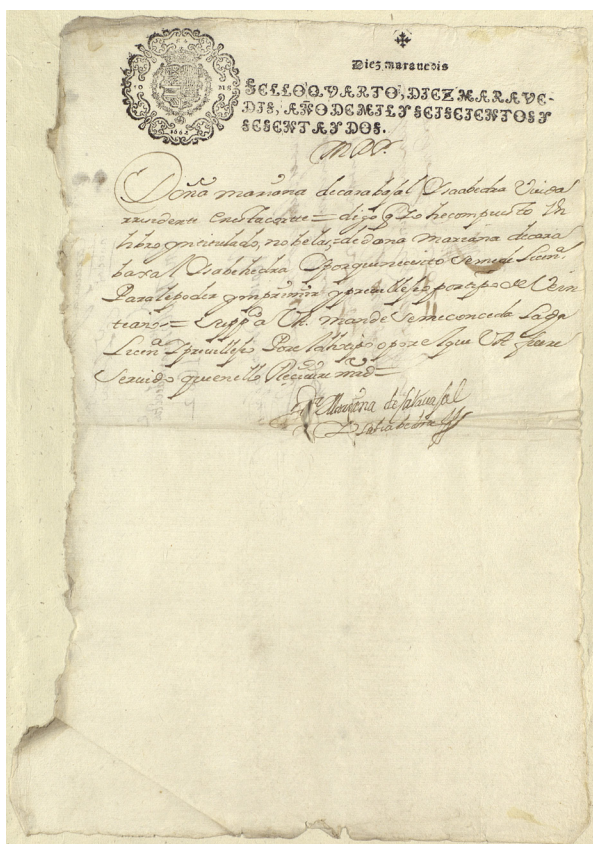 Diez marauedis
SELLO QVARTO, DIEZ MARAVE-
DIS, AÑO DE MIL Y SEISCIENTOS Y
SESENTA Y DOS.
1662
M. P. S.
Doña mariana de carabajal Y saabedra Viuda
rresidente en esta corte = digo q Yo he compuesto Un
libro yntitulado, nobelas de dona mariana de cara
baxal Y sabehedra Y porque necesito se me de licen.ª
Para le poder ynprimir y preuillesio por tpo de Vein
te años = supp.co a VA. mande se me conceda la dha
Licen.ª Y preuillesio Por el dho tpo o por el que VA. fuere
seruido que en ello Reçiuire mrd =
D.ª Mariana de Carauajal
Y sabedra